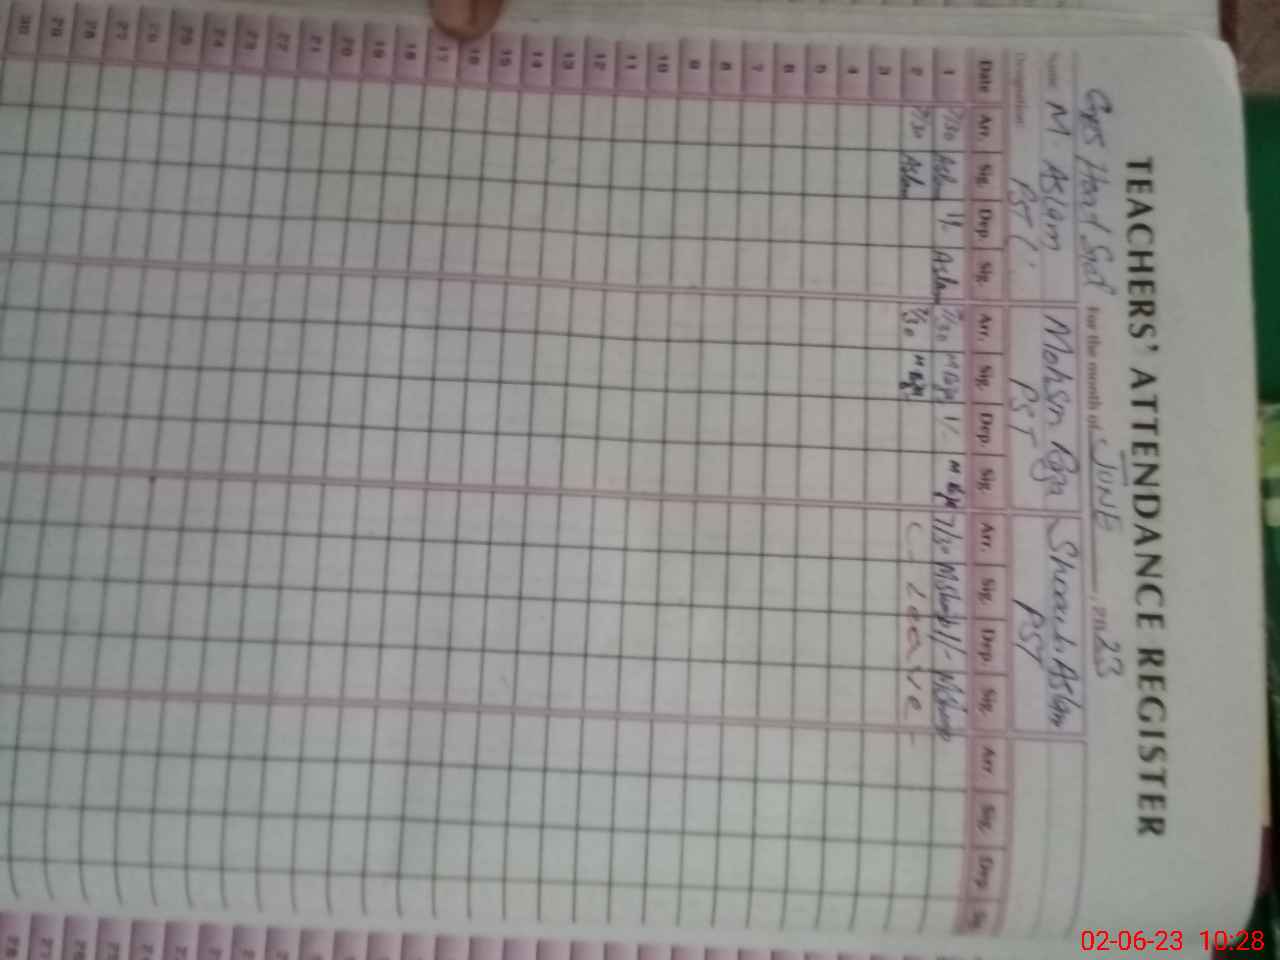 TEACHERS' ATTENDANCE REGISTER
GPS For the month of JUNE, 2023
Name M. Aslam Mohsin Raja Aslam
Designation: PST PST PST
Date Arr. Sig. Dep. Sig. Arr. Sig. Dep. Sig. Arr. Sig. Dep. Sig. Arr. Sig. Dep. Sig.
1 7/30 Aslam 1/- Aslam 7/30 1/- 7/30 1/-
2 7/30 Aslam 7/30 Leave
3
4
5
6
7
8
9
10
11
12
13
14
15
16
17
18
19
20
21
22
23
24
25
26
27
28
29
30
02-06-23 10:28